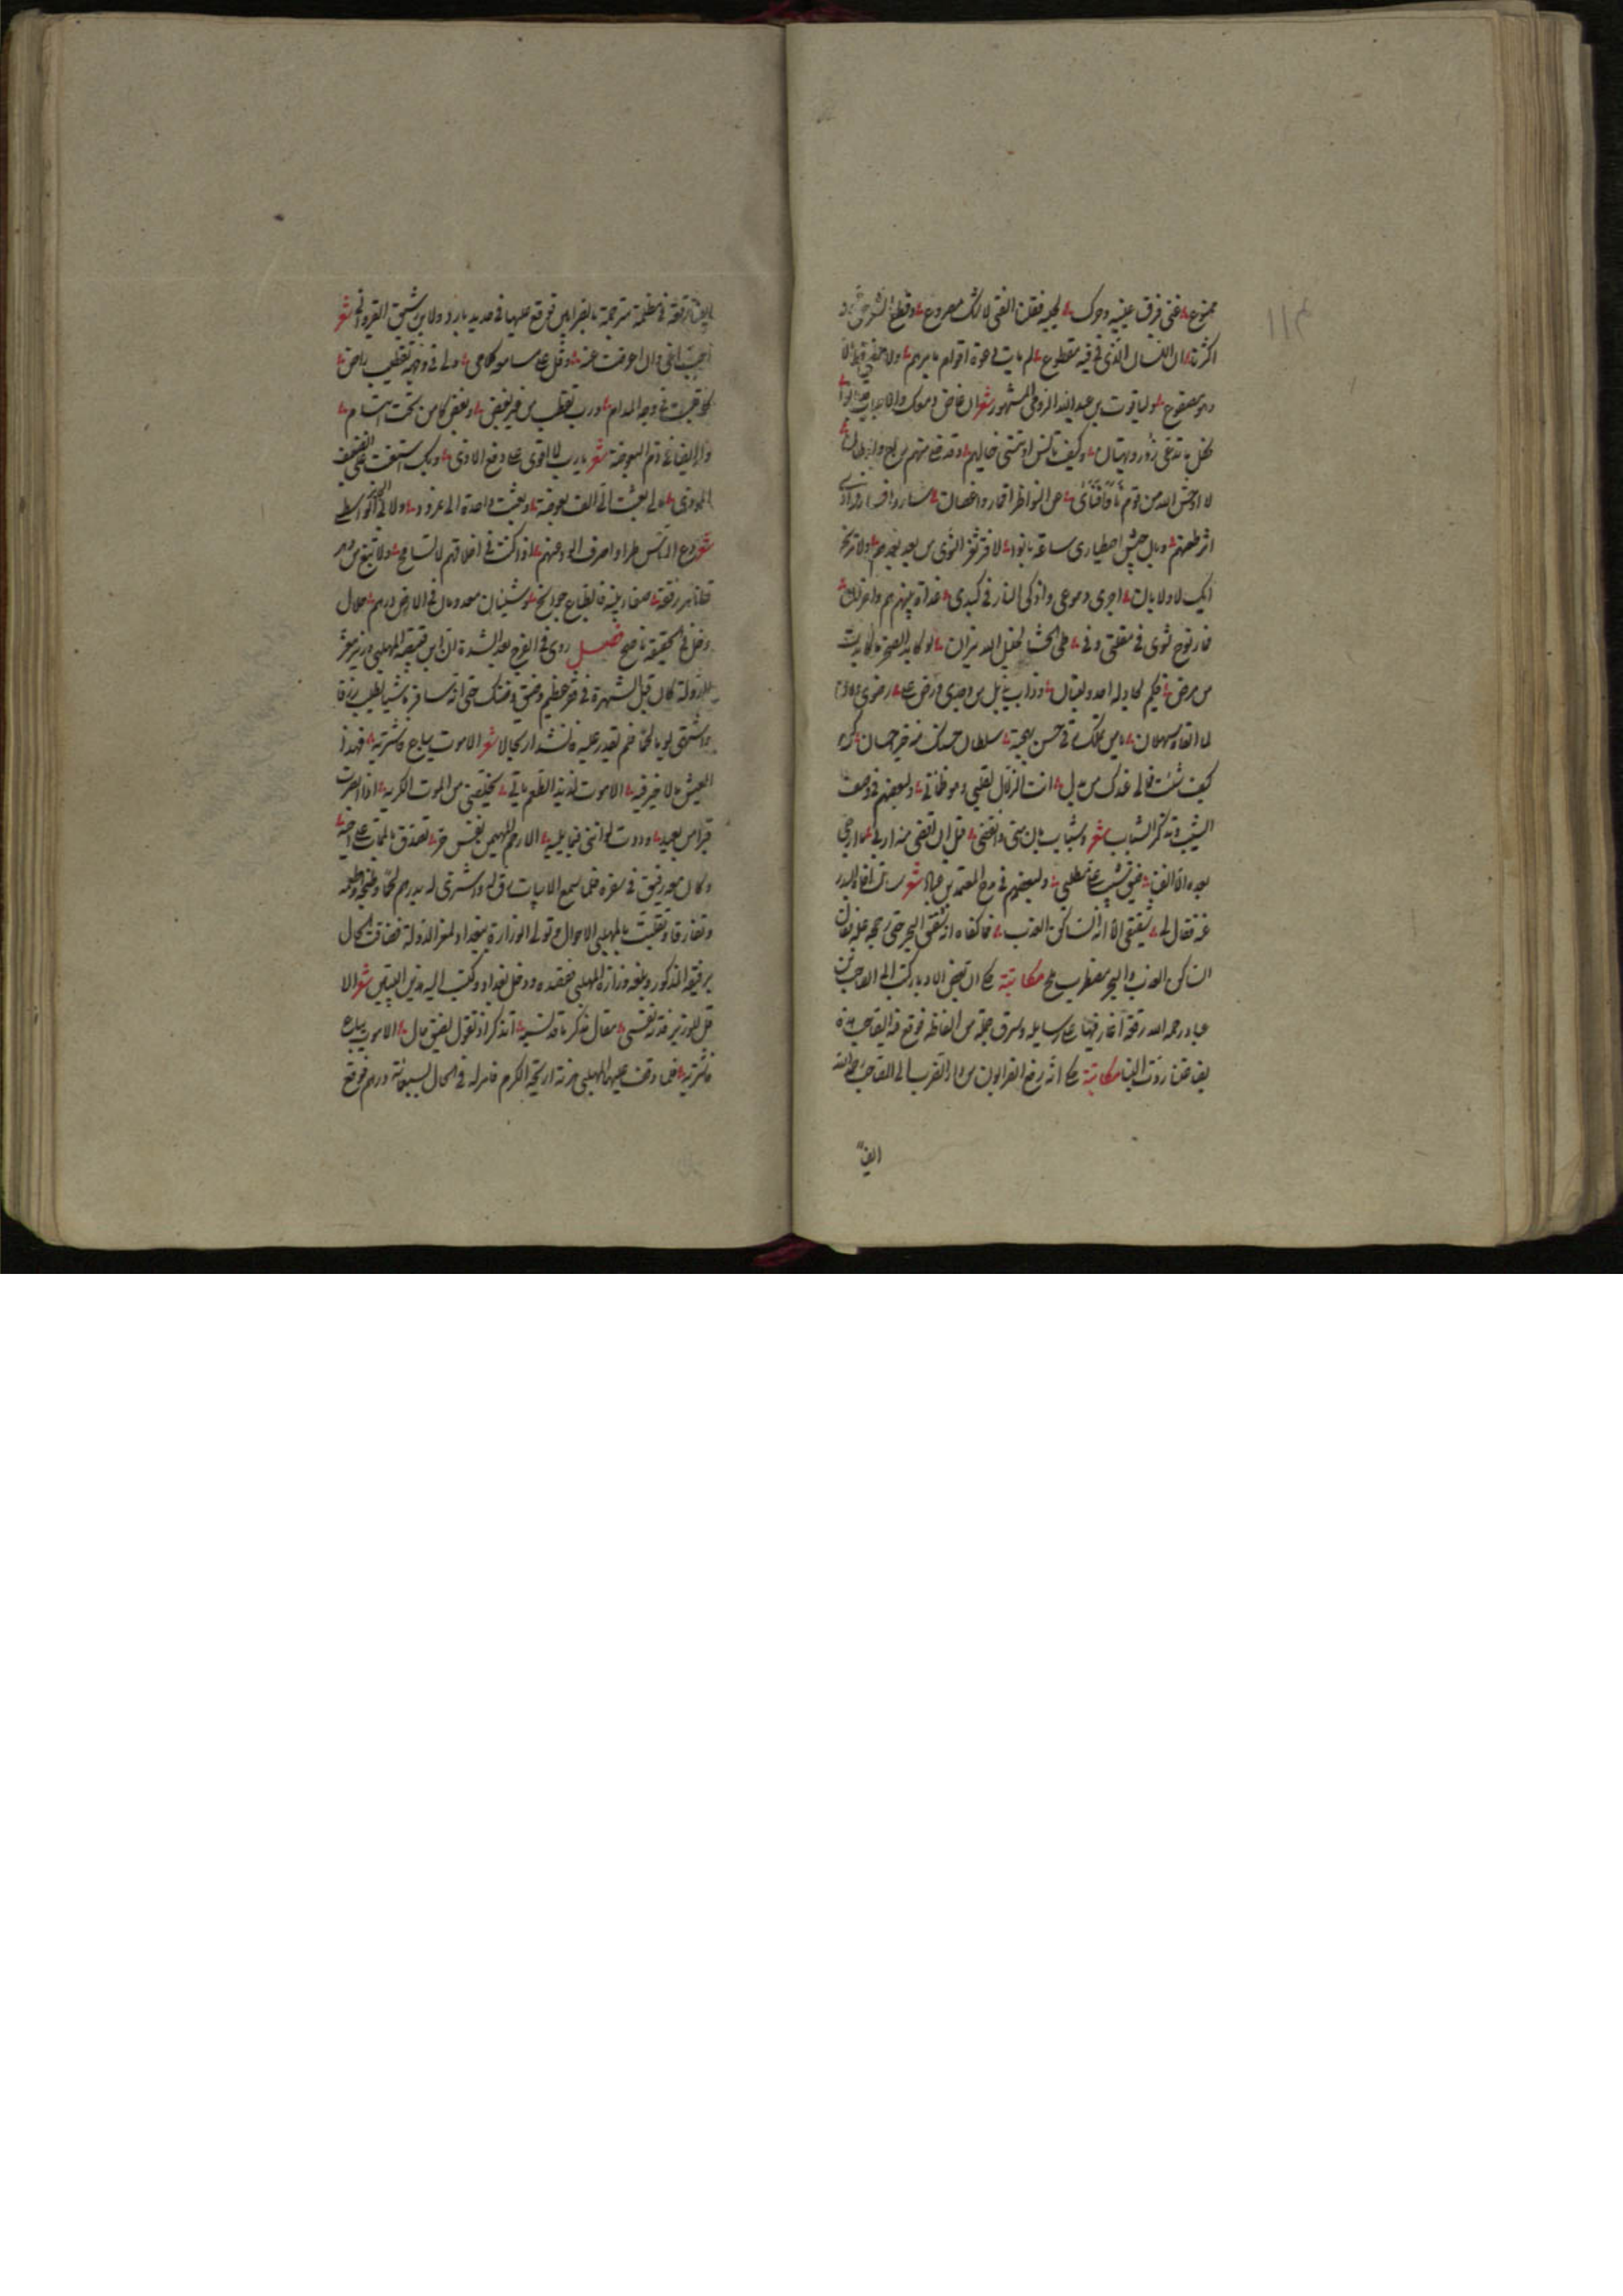 ممنوع غنى فرق عينيه وحرك لحيه فقلنا الفتى لا شك مصروع وقطع الشعر حتى ود
اكثرنا ان اللسان الذى فى فيه مقطوع لم يأت دعوة اقوام بأمرهم ولا مضى قط الا
وهو مصفوع ولياقوت بن عبدالله الرومى المشهور شعر ان غاض دمعك والاحباب قد بانوا
فكل ما تدعى زور وبهتان وكيف تأنس او تنسى خيالهم وقد خلا منهم ربع واوطان
لا اوحش الله من قوم نأوا فنأى عن النواظر اقمار واغصان ساروا فسار فؤادى
اثر ظعنهم وبان جيش اصطبارى ساعة بانوا لا افتر ثغر الثرى من بعد بعدهم ولا ترنح
ايك لا ولا بان اجرى دموعى واذكى النار فى كبدى غداة بينهم هم واحزان
فار نوح ثوى فى مقلتى وفى طى الحشا لخليل الله نيران لو كابد الصخر ما كابدت
من مرض فيكم لحاد له احد ولبنان وذاب يذبل من وجدى ورض على رضوى
لما القاه ثهلان يا من تملك رقى حسن بهجته سلطان حسنك ما منه احسان كن
كيف شئت فما لى عنك من بدل انت الزلال لقلبى وهو ظمآن ولبعضهم فى وصف
الشيب وتذكر الشباب شعر وشباب بان منى وانقضى قبل ان اقضى منه اربى ما ارجى
بعده الا الفنا ضيق الشيب على مطلبى ولبعضهم فى مدح المعتمد بن عباد شعر سألت اخاه البحر
عنه فقال لى شقيقى الا انه الساكن العذب فاكفاه انه شقيق البحر حتى رجحه عليه فقال
الساكن العذب والبحر مضطرب ملح مكاتبة حكى ان بعض الادباء كتب الى الصاحب بن
عباد رحمه الله رقعة اغار فيها على رسايله وسرق جملة من الفاظه فوقع فيها الصاحب هذه
بضاعتنا ردت الينا مكاتبة حكى انه رفع الضرابون من دار الضرب الى الصاحب رحمه الله
ايضا
ايضا رقعة فى مظلمة مترجمة بالضرابين فوقع عليها فى حديد بارد ولابن رشيق القيروانى شعر
احب اخى وان اعرضت عنه وقل على مسامعه كلامى ولى فى وجهه تقطيب راض
كما قطبت فى وجه المدام ورب تقطب من غير بغض وبغض كامن تحت ابتسام
وله ايضا فى ذم البعوضة شعر يا رب لا اقوى على دفع الاذى وبك استعنت على الضعيف
الموذى مالى بعثت الى الف بعوضة وبعثت واحدة الى نمرود ولابى الفرج الواسطى
شعر دع الناس طرا واصرف الود عنهم اذا كنت فى اخلاقهم لا تسامح ولا تبغ من دهر
تظاهر رنقه صفاء بنيه فالطباع جوامح وشيئان معدومان فى الارض درهم حلال
وخل فى الحقيقة ناصح فصل روى فى الفرج بعد الشدة ان ابن قبيصة المهلبى وزير معز
الدولة كان قبل الشهرة فى فقر عظيم وضيق وضنك حتى انه سافر ماشيا لطلب رزق
واشتهى يوما لحما فلم يقدر عليه فانشد ارتجالا شعر الا موت يباع فاشتريه فهذا
العيش ما لا خير فيه الا موت لذيذ الطعم يأتى يخلصنى من الموت الكريه اذا ابصرت
قبرا من بعيد وددت لو اننى فيما يليه الا رحم المهيمن نفس حر تصدق بالممات على اخيه
وكان معه رفيق فى سفره فلما سمع الابيات رق له واشترى له بدرهم لحما وطبخه واطعمه
وتفارقا وتقلبت بالمهلبى الاحوال وتولى الوزارة ببغداد لمعز الدولة فضاقت الحال
برفيقه المذكور وبلغه وزارة المهلبى فقصده ودخل بغداد وكتب اليه هذين البيتين شعر الا
قل للوزير فدته نفسى مقال مذكر ما قد نسيه اتذكر اذ تقول لضيق حال الا موت يباع
فاشتريه فلما وقف عليها المهلبى هزته اريحية الكرم فامر له فى الحال بسبعمائة درهم فوقع